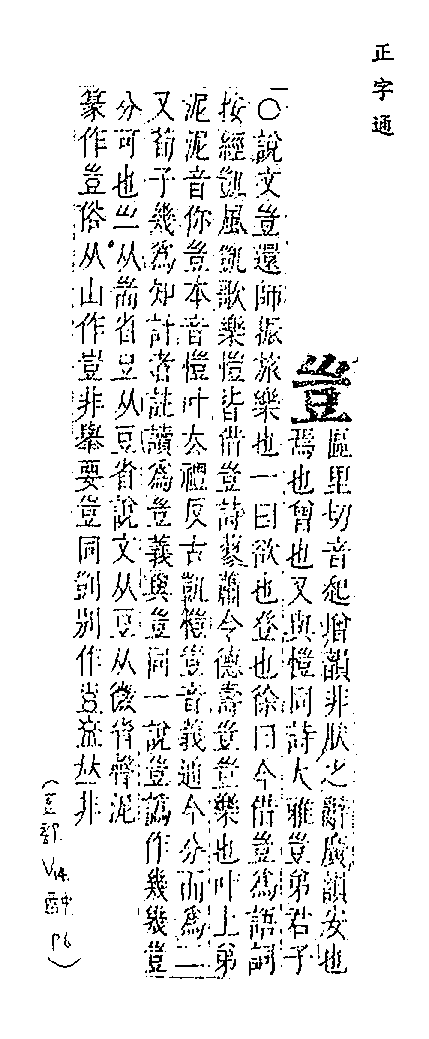 正字通
豈
區里切音起增韻非肰之辭廣韻安也
焉也曾也又與愷同詩大雅豈弟君子
○說文豈還師振旅樂也一曰欲也登也徐曰今借豈爲語詞
按經凱風凱歌樂愷皆借豈詩蓼蕭令德壽豈豈樂也叶上弟
泥泥音你豈本音愷叶去禮反古凱愷豈音義通今分而爲二
又荀子幾爲知計者註讀爲豈義與豈同一說豈譌作幾幾豈
分可也 从耑省豆从豆省說文从豆从微省
篆作豈俗从山作豈非舉要豈同 別作 𠀤非
(豆部 V14 酉中 P6)